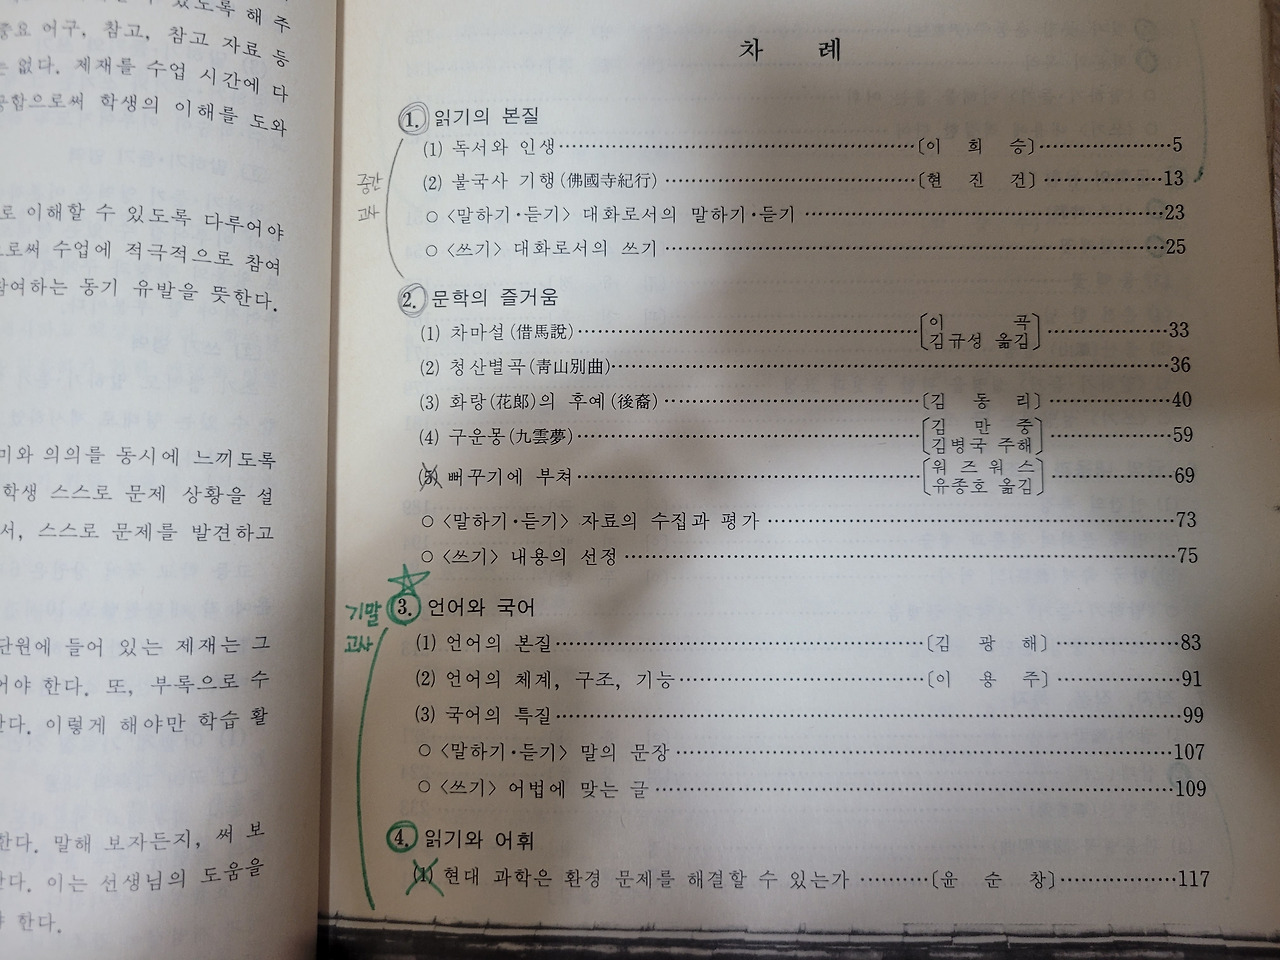 있도록 해 주
중요 어구, 참고, 참고 자료 등
없다. 제재를 수업 시간에 다
공함으로써 학생의 이해를 도와
로 이해할 수 있도록 다루어야
로써 수업에 적극적으로 참여
참여하는 동기 유발을 뜻한다.
미와 의의를 동시에 느끼도록
학생 스스로 문제 상황을 설
서, 스스로 문제를 발견하고
단원에 들어 있는 제재는 그
어야 한다. 또, 부록으로 수
한다. 이렇게 해야만 학습 활
한다. 말해 보자든지, 써 보
한다. 이는 선생님의 도움을
한다.
차 례
1. 읽기의 본질
(1) 독서와 인생 〔이 희 승〕 5
중간
(2) 불국사 기행(佛國寺紀行) 〔현 진 건〕 13
고사
○ 〈말하기·듣기〉 대화로서의 말하기·듣기 23
○ 〈쓰기〉 대화로서의 쓰기 25
2. 문학의 즐거움
(1) 차마설(借馬說) 〔이 곡 김규성 옮김〕 33
(2) 청산별곡(靑山別曲) 36
(3) 화랑(花郞)의 후예(後裔) 〔김 동 리〕 40
(4) 구운몽(九雲夢) 〔김 만 중 김병국 주해〕 59
(5) 뻐꾸기에 부쳐 〔워 즈 워 스 유종호 옮김〕 69
○ 〈말하기·듣기〉 자료의 수집과 평가 73
○ 〈쓰기〉 내용의 선정 75
기말
3. 언어와 국어
고사
(1) 언어의 본질 〔김 광 해〕 83
(2) 언어의 체계, 구조, 기능 〔이 용 주〕 91
(3) 국어의 특질 99
○ 〈말하기·듣기〉 말의 문장 107
○ 〈쓰기〉 어법에 맞는 글 109
4. 읽기와 어휘
(1) 현대 과학은 환경 문제를 해결할 수 있는가 〔윤 순 창〕 117